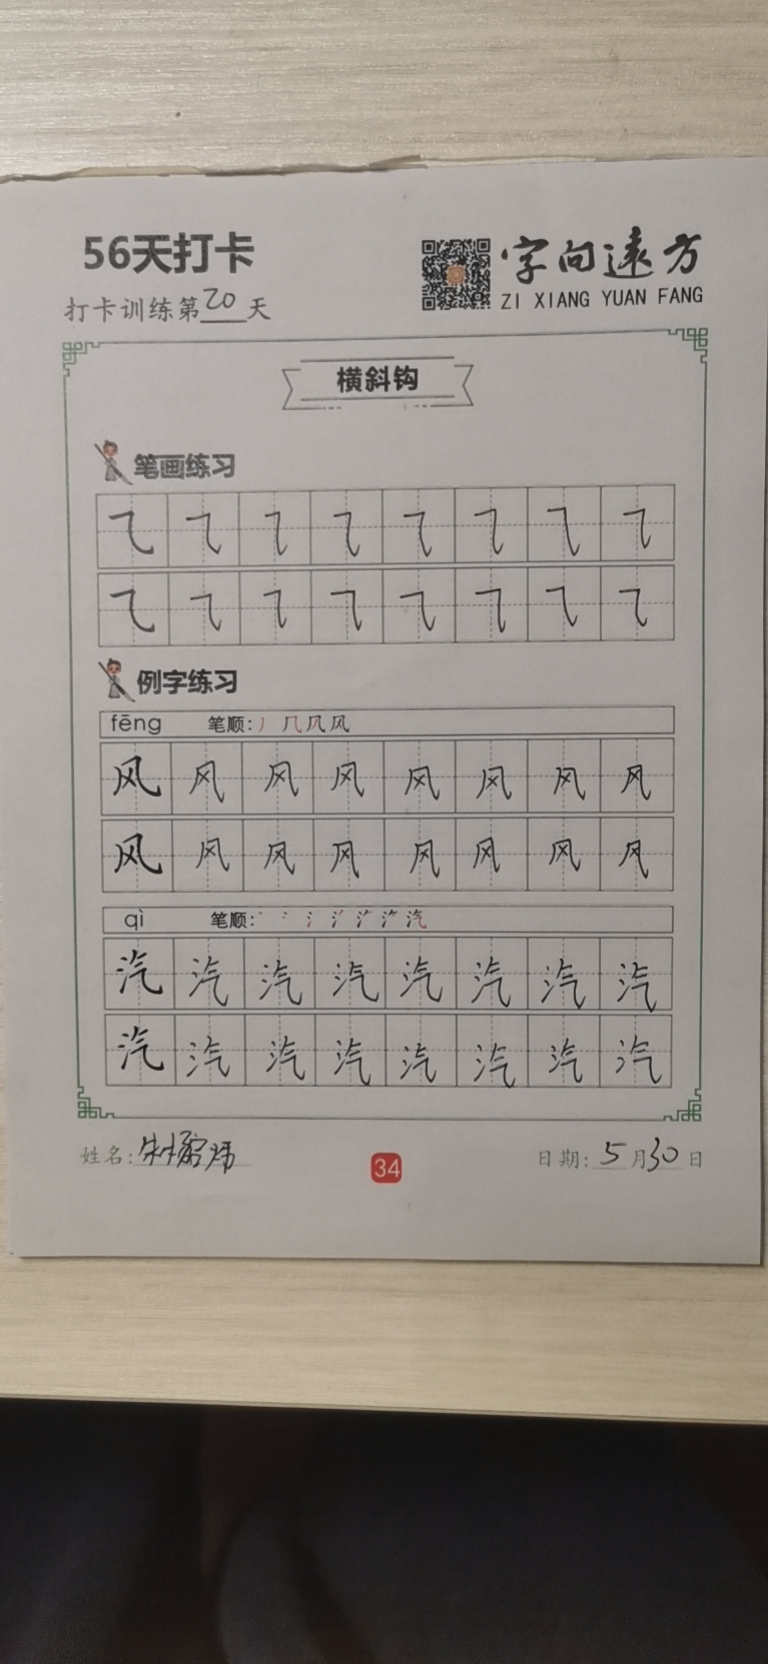 56天打卡
字向远方
ZI XIANG YUAN FANG
打卡训练第20天
横斜钩
笔画练习
⺄ ⺄ ⺄ ⺄ ⺄ ⺄ ⺄ ⺄
⺄ ⺄ ⺄ ⺄ ⺄ ⺄ ⺄ ⺄
例字练习
fēng 笔顺:丿 几 凤 风
风 风 风 风 风 风 风 风
风 风 风 风 风 风 风 风
qì 笔顺: 汽
汽 汽 汽 汽 汽 汽 汽 汽
汽 汽 汽 汽 汽 汽 汽 汽
姓名:
34
日期: 5月30日